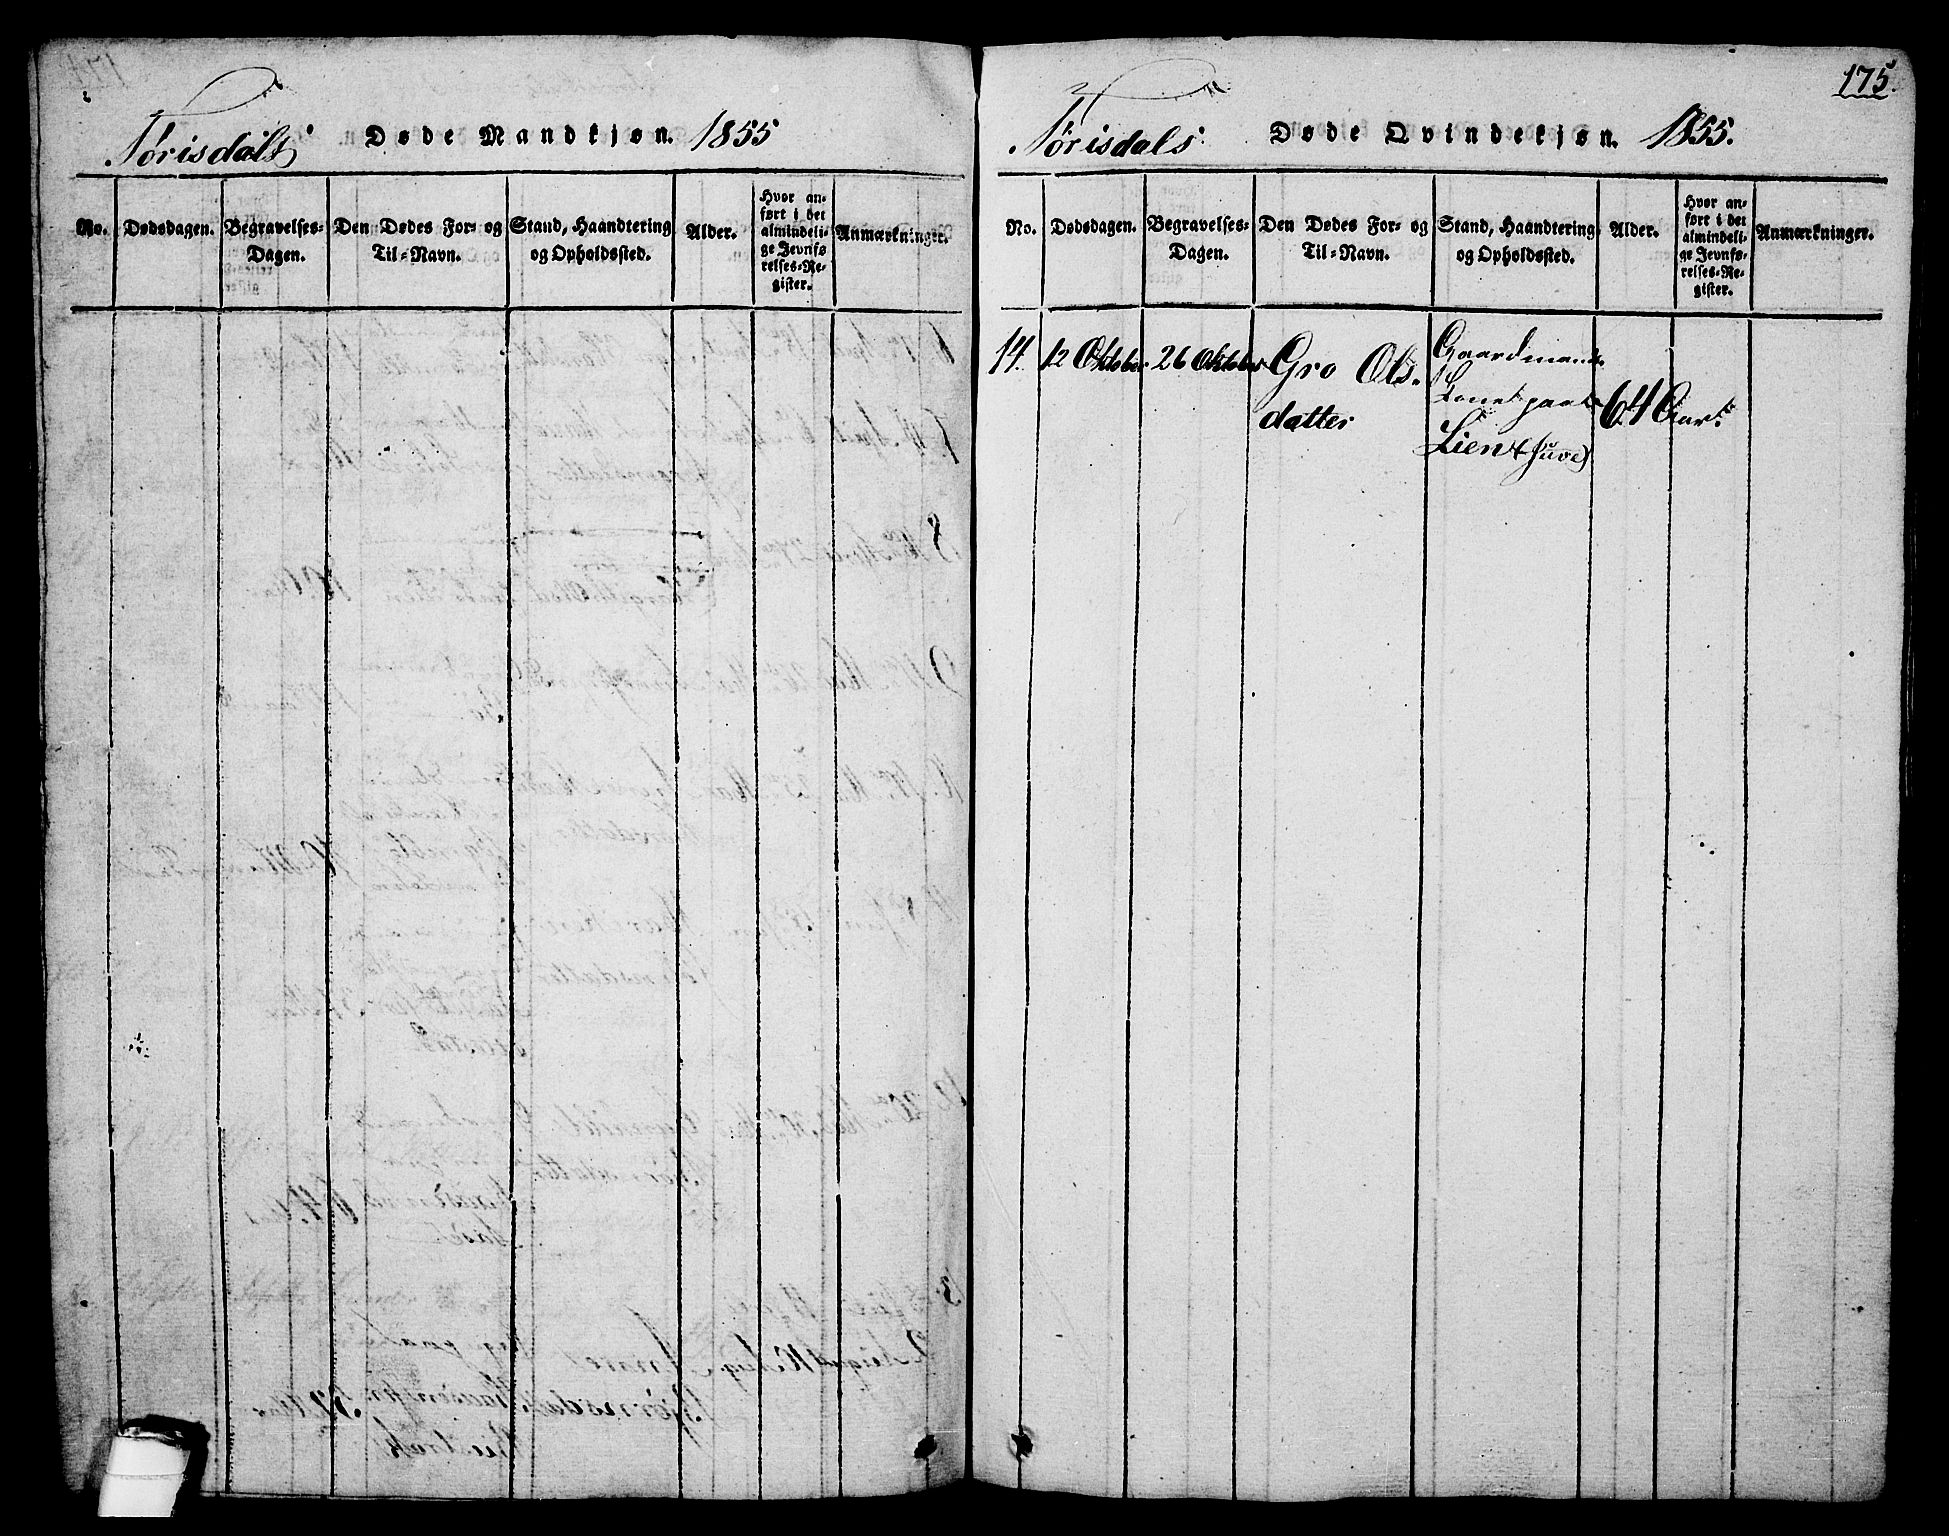 Tørisdals Døde Mandkjøn. 1855
No.
Dødsdagen.
Begravelses-
Dagen.
Den Dødes For- og
Til-Navn.
Stand, Haandtering
og Opholdssted.
Alder.
Hvor an-
ført i det
almindeli-
ge Jevnfø-
relses-Re-
gister.
Anmærkninger.
175.
Tørisdals Døde Qvindekjøn. 1855.
No.
Dødsdagen.
Begravelses-
Dagen.
Den Dødes For- og
Til-Navn.
Stand, Haandtering
og Opholdssted.
Alder.
Hvor an-
ført i det
almindeli-
ge Jevnfø-
relses-Re-
gister.
Anmærkninger.
14. 12 Oktober 26 Oktober Gro Ols-
datter
Gaardmands
Lien
64 Aar